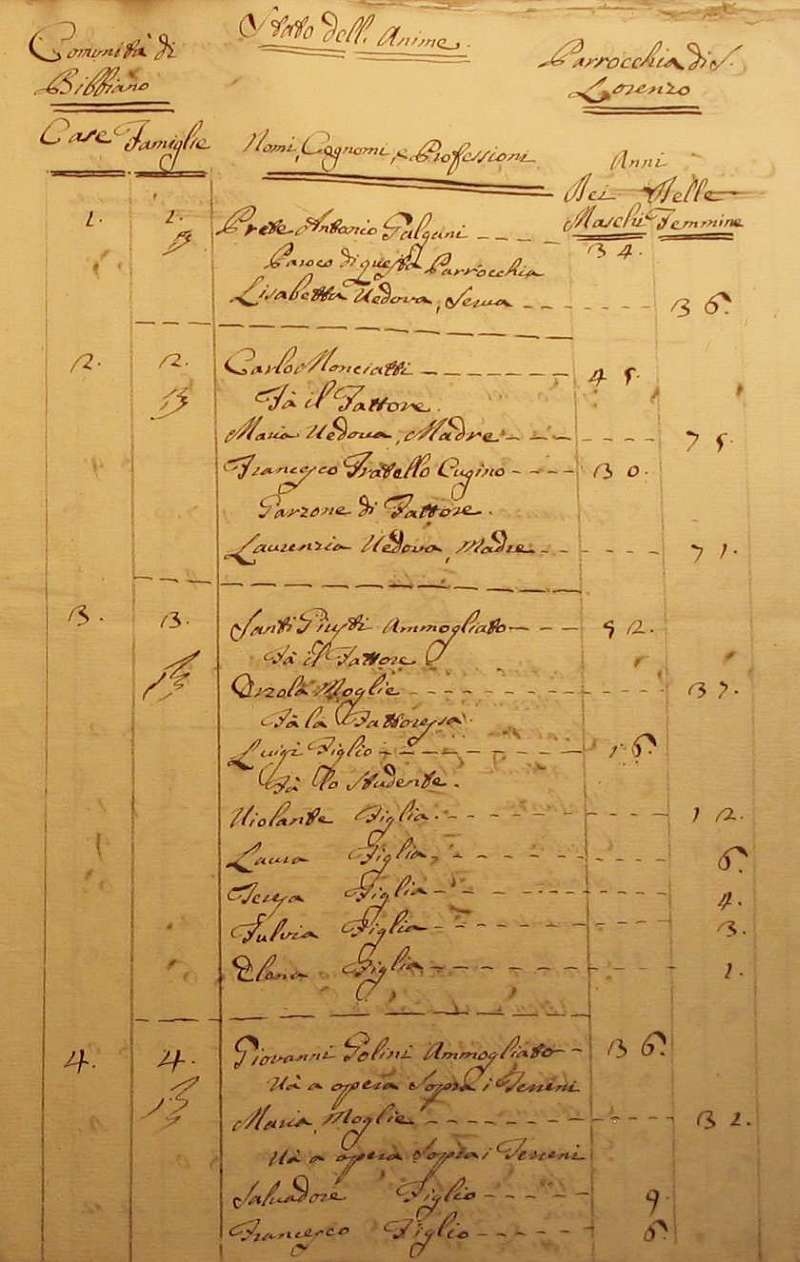 Stato dell'Anime.
Comunità di
Bibbiano
Parrocchia di S.
Lorenzo
Case Famiglie Nomi, Cognomi, e Professioni Anni
Dei Maschi Delle Femmine
1. 1. Prete Antonio Galgani 34.
Paroco di questa Parrocchia
Lisabetta Vedova, Serva 36.
2. 2. Carlo Monciatti 45.
Fà il Fattore.
Maria Vedova, Madre 75.
Francesco Fratello Cugino 30.
Garzone di Fattore.
Laurenzia Vedova, Madre 71.
3. 3. Santi Giusti Ammogliato 52.
Fà il Fattore
Orzola Moglie 37.
Fà la Fattoressa.
Luigi Figlio 16.
Fà lo Studente.
Violante Figlia 12.
Laura Figlia 6.
Teresa Figlia 4.
Fulvia Figlia 3.
Elena Figlia 1.
4. 4. Giovanni Golini Ammogliato 36.
Và a opera Sopra i Terreni
Maria Moglie 32.
Và a opera Sopra i Terreni
Salvadore Figlio 9.
Francesco Figlio 6.